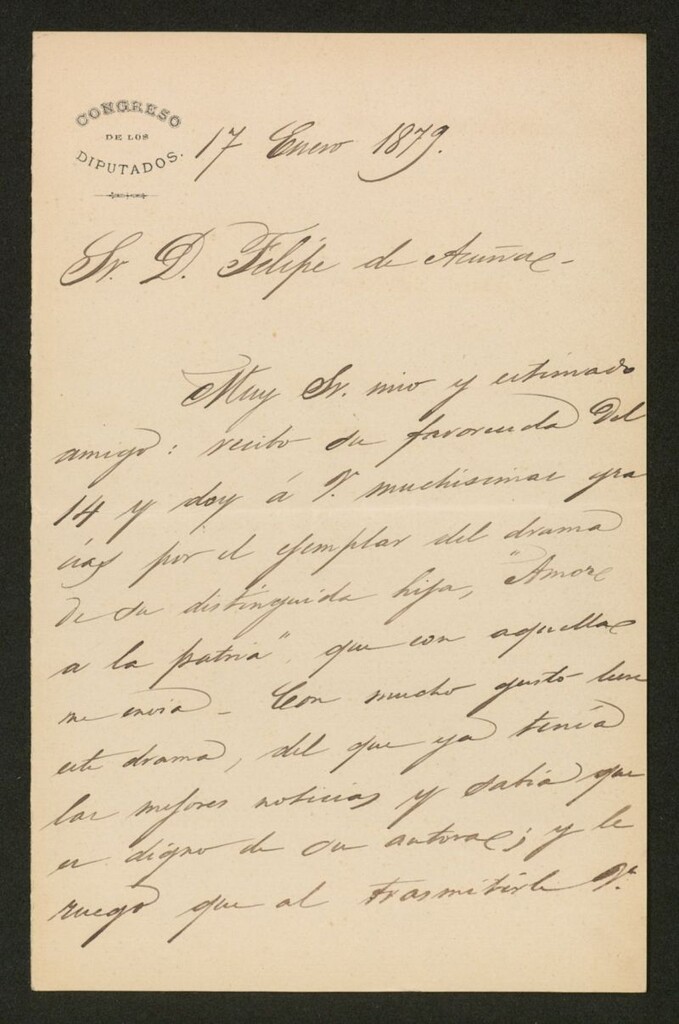 CONGRESO
DE LOS
DIPUTADOS.
17 Enero 1879.
Sr. D. Felipe de Acuña
Muy Sr. mio y estimado
amigo: recibo su favorecida del
14 y doy á V. muchisimas gra
cias por el ejemplar del drama
de su distinguida hija, "Amor
a la patria" que con aquella
me envia - Con mucho gusto leere
este drama, del que ya tenia
las mejores noticias y sabia que
es digno de su autora; y le
ruego que al trasmitirle V.